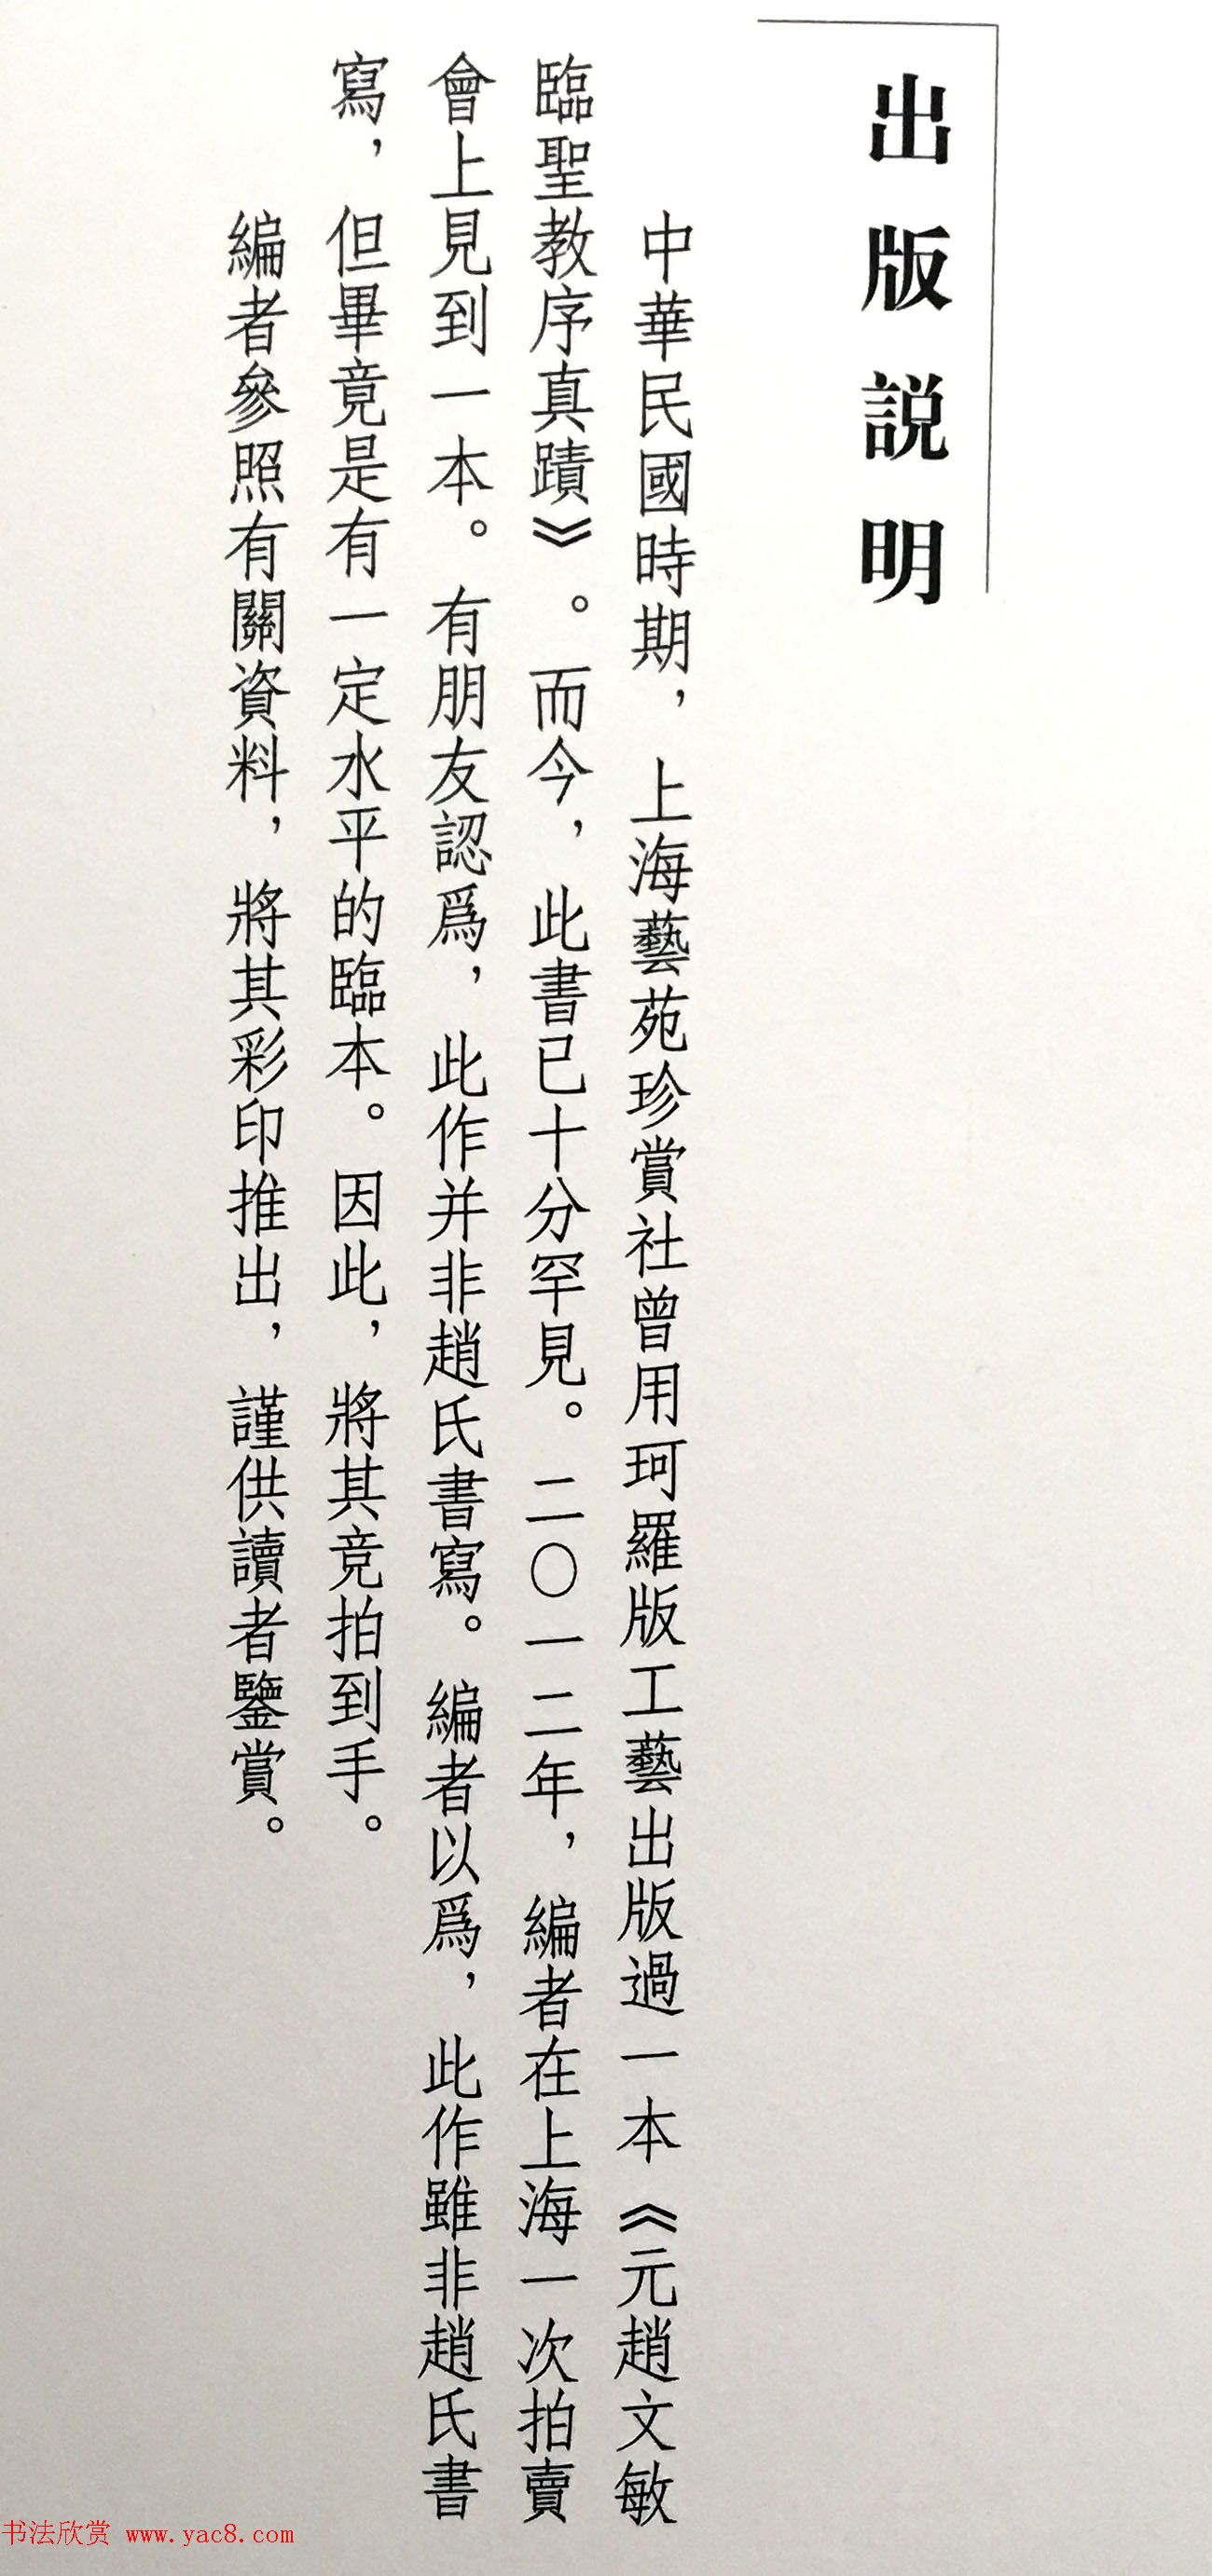 出版説明
中華民國時期，上海藝苑珍賞社曾用珂羅版工藝出版過一本《元趙文敏
臨聖教序真蹟》。而今，此書已十分罕見。二〇一二年，編者在上海一次拍賣
會上見到一本。有朋友認爲，此作并非趙氏書寫。編者以爲，此作雖非趙氏書
寫，但畢竟是有一定水平的臨本。因此，將其竞拍到手。
編者參照有關資料，將其彩印推出，謹供讀者鑒賞。
书法欣赏 www.yac8.com